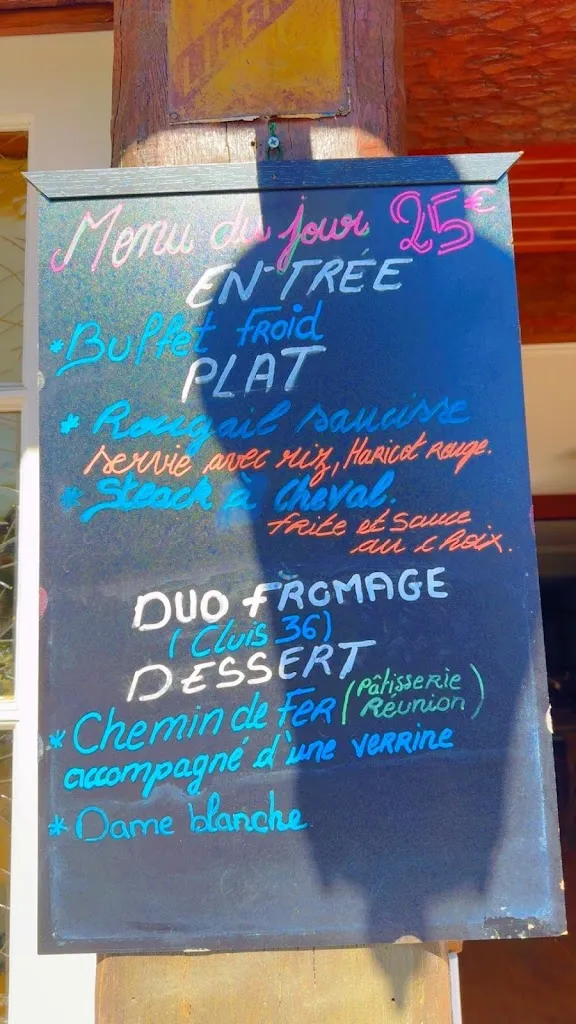 LICEN
Menu du jour 25€
ENTRÉE
* Buffet froid
PLAT
* Rougail saucisse
servie avec riz, Haricot rouge.
* Steack à cheval.
frite et sauce
au choix.
DUO FROMAGE
(Cluis 36)
DESSERT
* Chemin de FER (Pâtisserie
Reunion)
accompagné d'une verrine
* Dame blanche